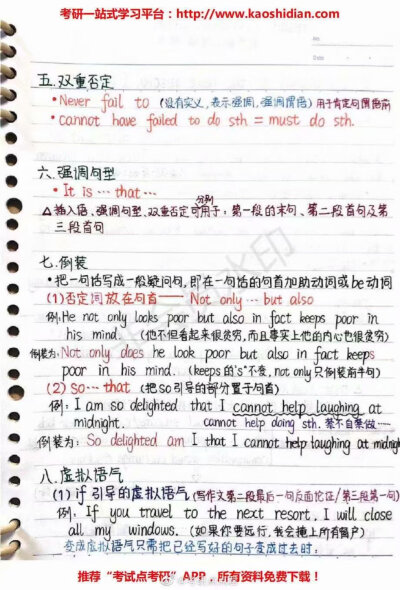 考研一站式学习平台：http://www.kaoshidian.com/
No.
Date
五.双重否定
• Never fail to (没有实义,表示强调,强调谓语) 用于肯定句谓语前
• cannot have failed to do sth = must do sth.
六.强调句型
• It is … that …
分别
△ 插入语、强调句型、双重否定可用于：第一段的末句、第二段首句及第
三段首句
七.倒装
• 把一句话写成一般疑问句,即在一句话的句首加助动词或be动词
(1) 否定词放在句首—— Not only … but also
例: He not only looks poor but also in fact keeps poor in
his mind. (他不但看起来很贫穷,而且事实上他的内心也很贫穷)
例装为: Not only does he look poor but also in fact keeps
poor in his mind. (keeps的's'不变, not only只倒装前半句)
(2) so… that (把so引导的部分置于句首)
例: I am so delighted that I cannot help laughing at
midnight. cannot help doing sth. 禁不自禁做……
例装为: So delighted am I that I cannot help laughing at midnigh
八.虚拟语气
(1) if 引导的虚拟语气 (写作文第二段最后一句反面论证/第三段第一句)
例: If you travel to the next resort, I will close
all my windows. (如果你要远行,我会掩上所有窗户)
变成虚拟语气只需把已经写好的句子变成过去时.
推荐“考试点考研”APP，所有资料免费下载！